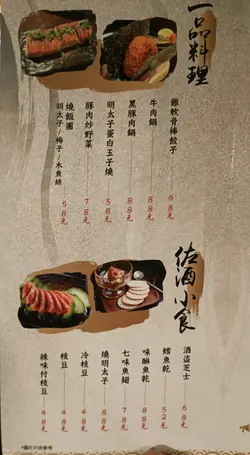 一品料理
雞軟骨棒餃子 68元
牛肉鍋 88元
黑豚肉鍋 88元
明太子蛋白玉子燒 58元
豚肉炒野菜 78元
燒飯團
明太子/梅子/木魚絲 58元
佐酒小食
酒盜芝士 68元
鱈魚乾 52元
味醂魚乾 58元
七味魚翅 78元
燒明太子 88元
冷枝豆 48元
枝豆 48元
辣味付枝豆 48元
*圖片只供參考